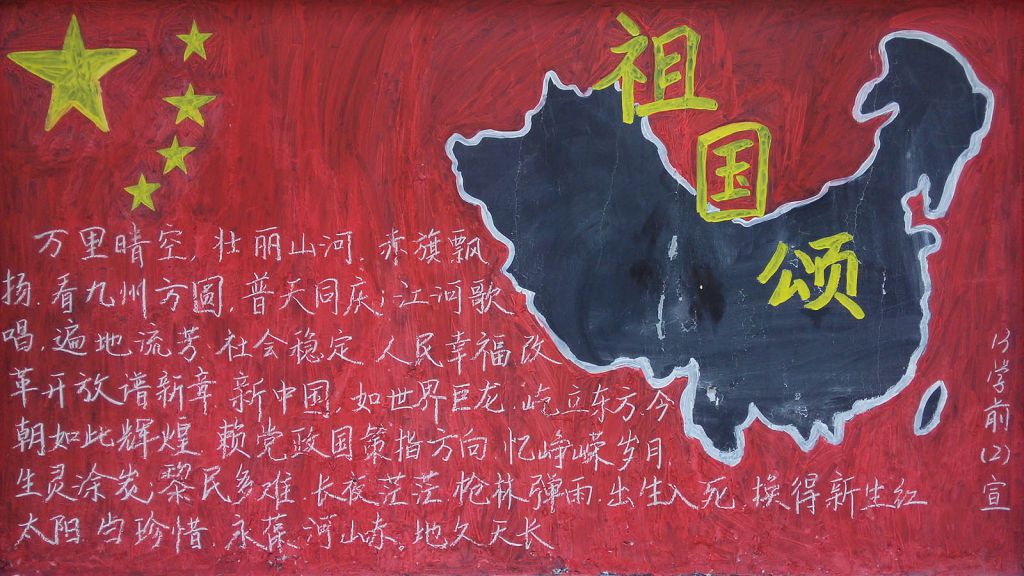 祖国颂
万里晴空，壮丽山河.赤旗飘
扬.看九州方圆，普天同庆;江河歌
唱，遍地流芳.社会稳定.人民幸福.改
革开放谱新章.新中国.如世界巨龙.屹立东方.今
朝如此辉煌.赖党政国策指方向.忆峥嵘岁月.
生灵涂炭.黎民多难.长夜茫茫.枪林弹雨.出生入死.换得新生红
太阳.当珍惜.永葆河山赤。地久天长
13学前(2)宣